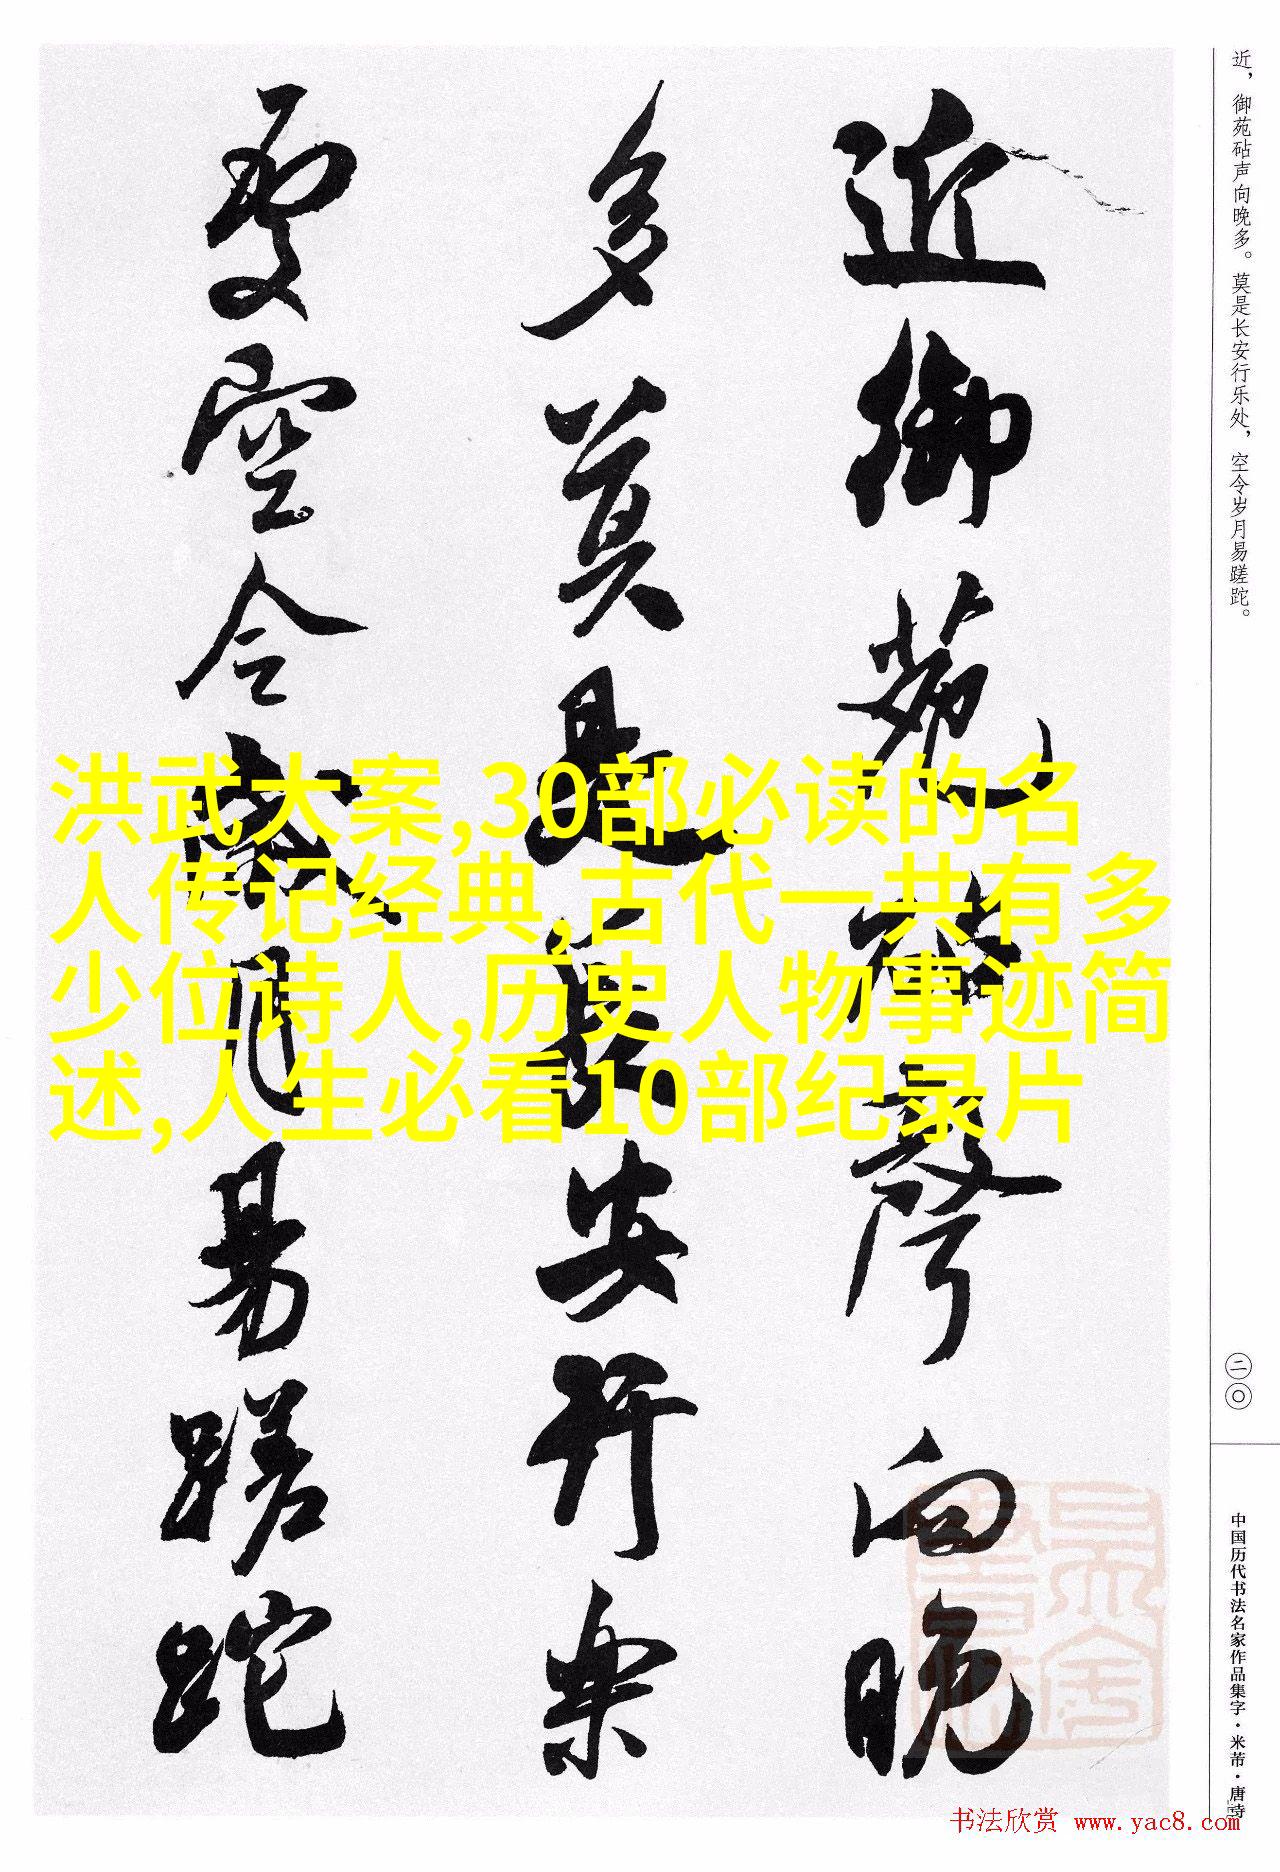 近，御苑砧声向晚多。莫是长安行乐处，空令岁月易蹉跎。
近御苑砧聲向晚
多莫是長安行樂
處空令歲月易蹉跎
洪武大案,30部必读的名
人传记经典,古代一共有多
少位诗人,历史人物事迹简
述,人生必看10部纪录片
二〇
中国历代书法名家作品集字·米芾·唐诗
书法欣赏 www.yac8.com